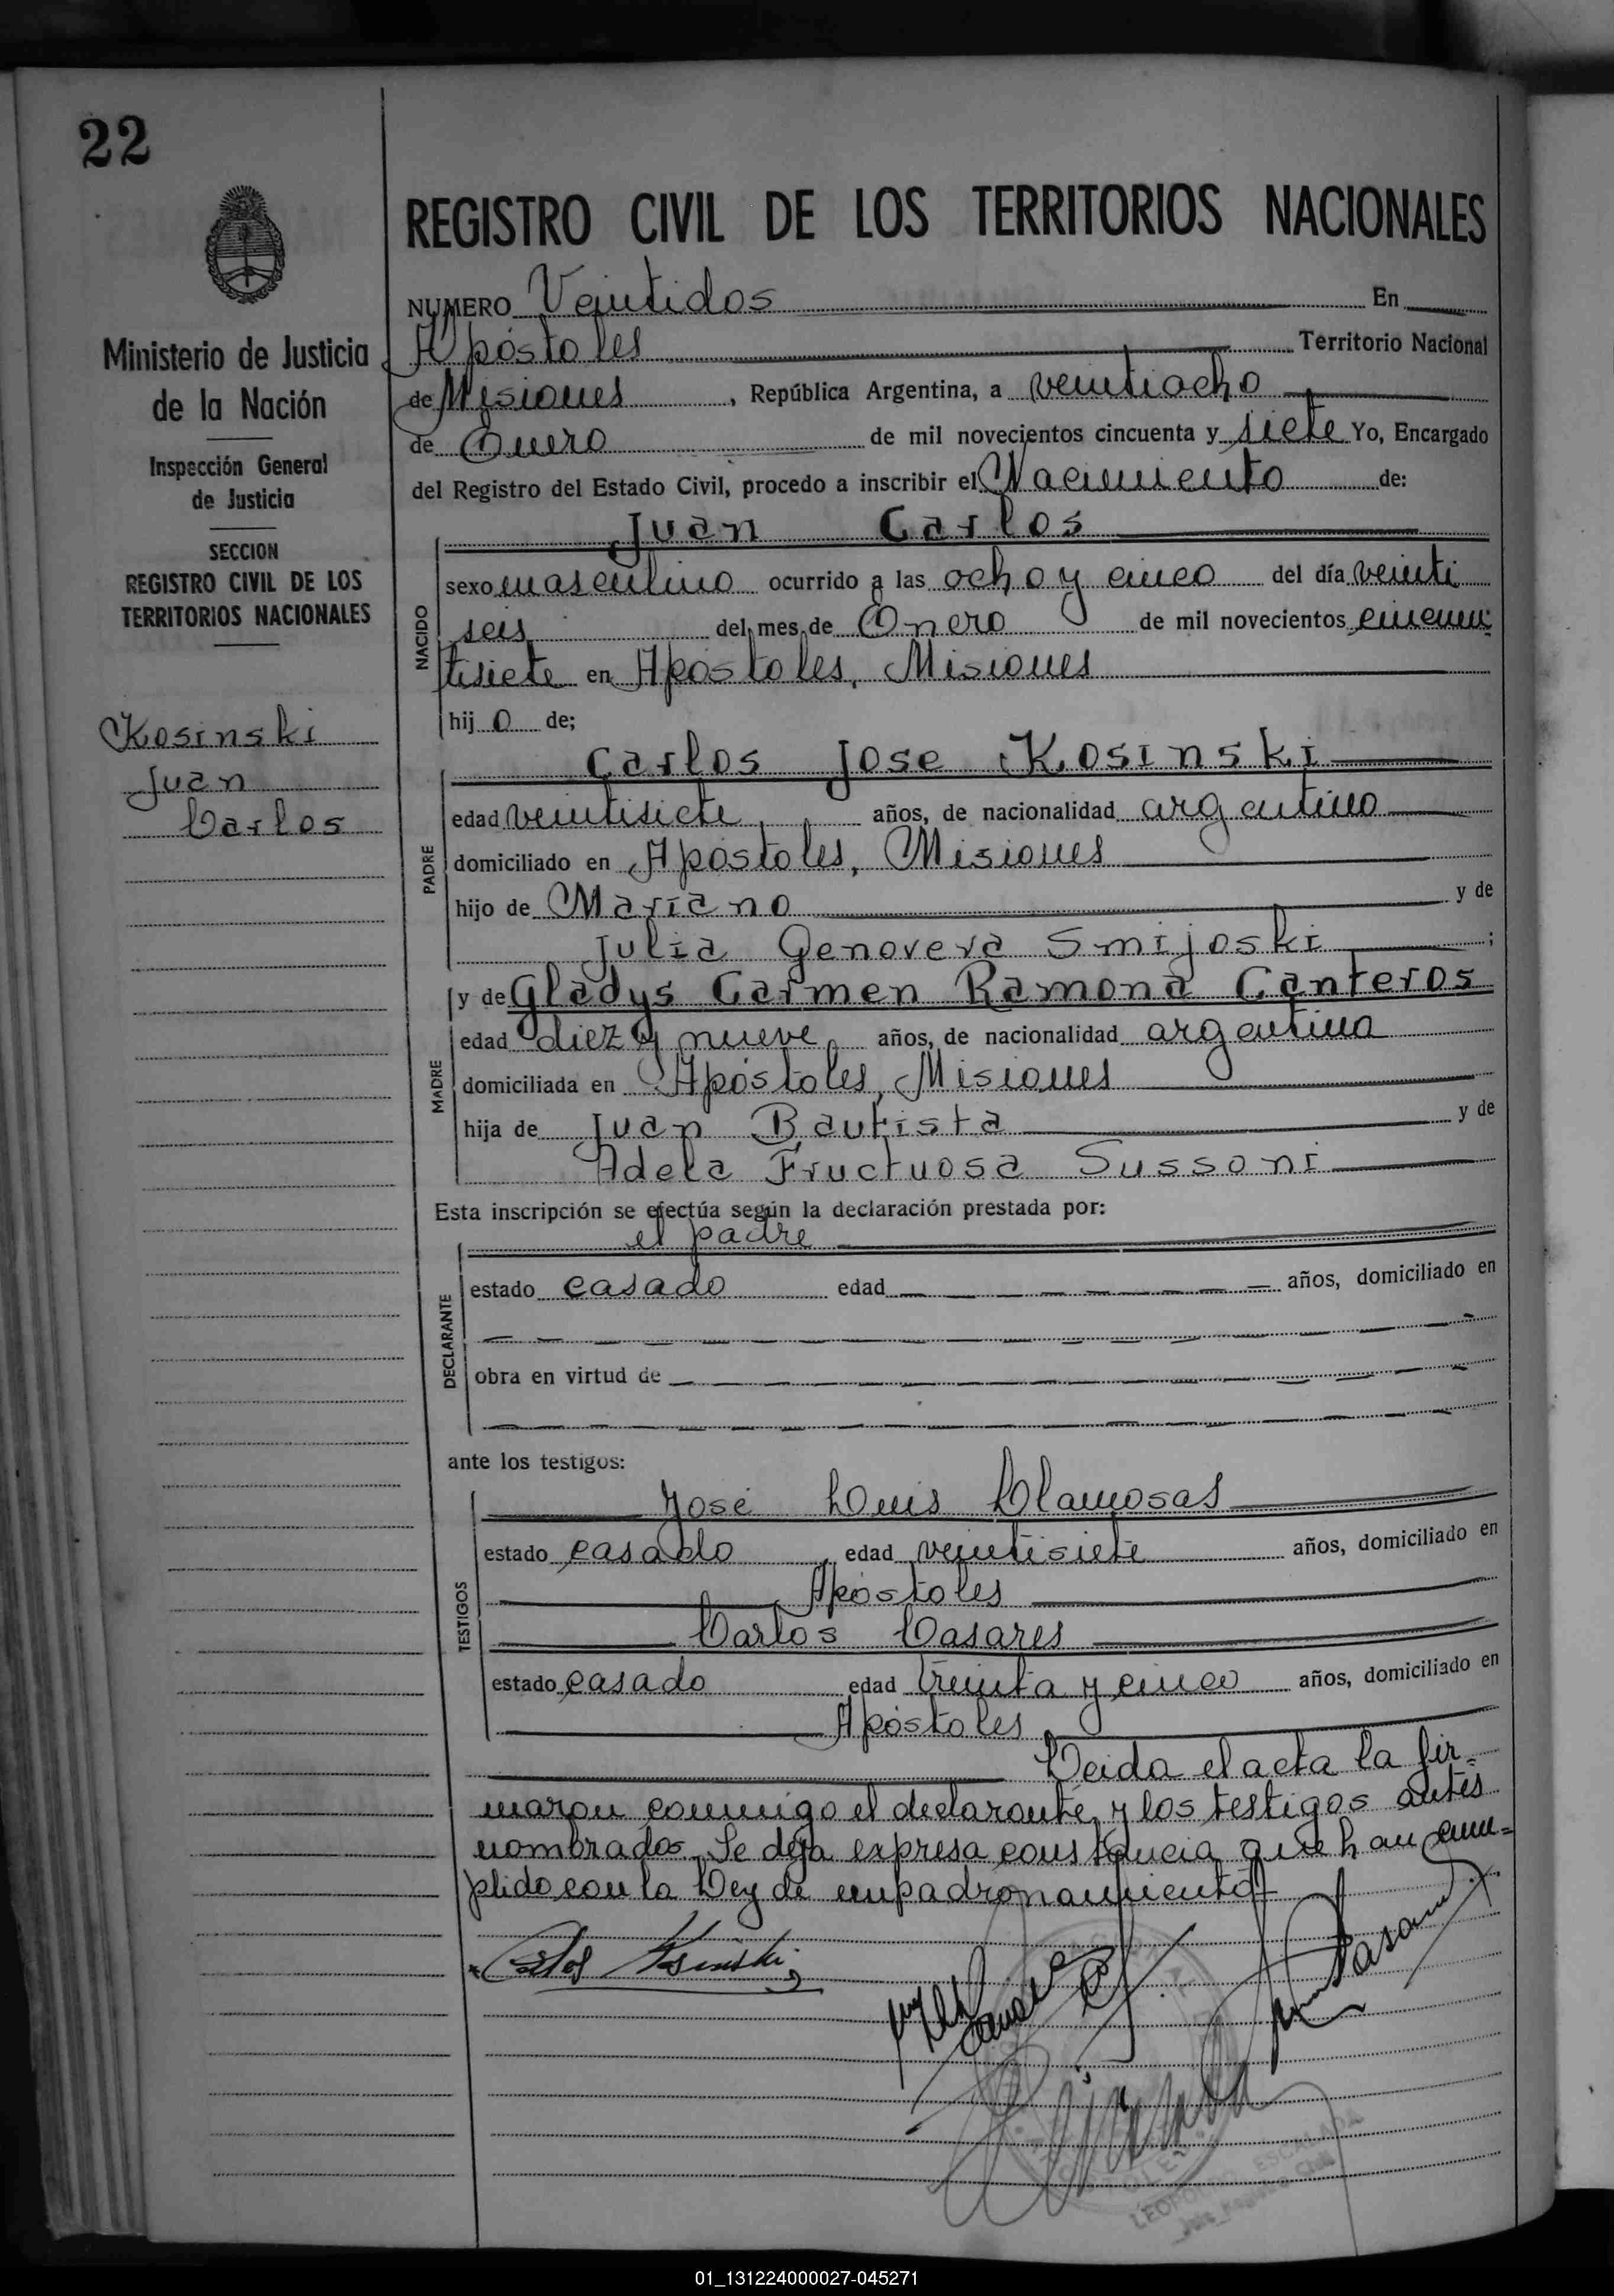 22
REGISTRO CIVIL DE LOS TERRITORIOS NACIONALES
Ministerio de Justicia
de la Nación
Inspección General
de Justicia
SECCION
REGISTRO CIVIL DE LOS
TERRITORIOS NACIONALES
Kosinski
Juan
Carlos
NUMERO Veintidos En
Apóstoles Territorio Nacional
de Misiones, República Argentina, a veintiocho
de Enero de mil novecientos cincuenta y siete Yo, Encargado
del Registro del Estado Civil, procedo a inscribir el Nacimiento de:
NACIDO
Juan Carlos
sexo masculino ocurrido a las ocho y cinco del día veinti
seis del mes de Enero de mil novecientos cincuen
tisiete en Apóstoles, Misiones
hijo de;
PADRE
Carlos Jose Kosinski
edad veintisiete años, de nacionalidad argentino
domiciliado en Apóstoles, Misiones
hijo de Mariano y de
Julia Genoveva Smijoski ;
MADRE
y de Gladys Carmen Ramona Canteros
edad diez y nueve años, de nacionalidad argentina
domiciliada en Apóstoles, Misiones
hija de Juan Bautista y de
Adela Fructuosa Sussoni
Esta inscripción se efectúa según la declaración prestada por:
DECLARANTE
el padre
estado casado edad años, domiciliado en
obra en virtud de
ante los testigos:
TESTIGOS
José Luis Llamosas
estado casado, edad veintisiete años, domiciliado en
Apóstoles
Carlos Casares
estado casado edad treinta y cinco años, domiciliado en
Apóstoles.
Leida el acta la fir-
maron conmigo el declarante y los testigos antes
nombrados. Se deja expresa constancia que han cum-
plido con la Ley de empadronamiento
Carlos Kosinski
LEOPOLDO ESCALADA
Jefe Registro Civil
01_131224000027-045271